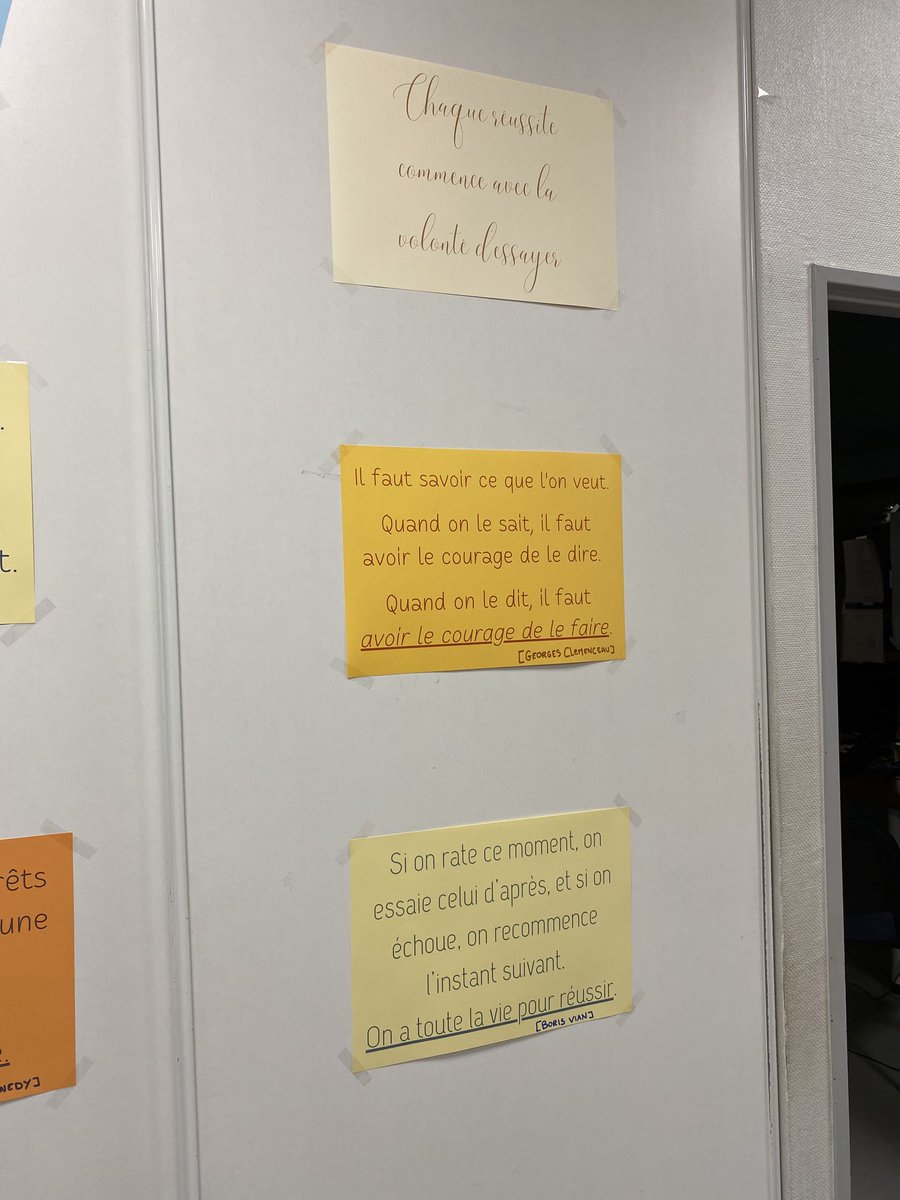 Chaque réussite
commence avec la
volonté d'essayer
Il faut savoir ce que l'on veut.
Quand on le sait, il faut
avoir le courage de le dire.
Quand on le dit, il faut
avoir le courage de le faire.
[GEORGES CLEMENCEAU]
Si on rate ce moment, on
essaie celui d'après, et si on
échoue, on recommence
l'instant suivant.
On a toute la vie pour réussir.
[BORIS VIAN]
t.
rêts
une
NEDY]